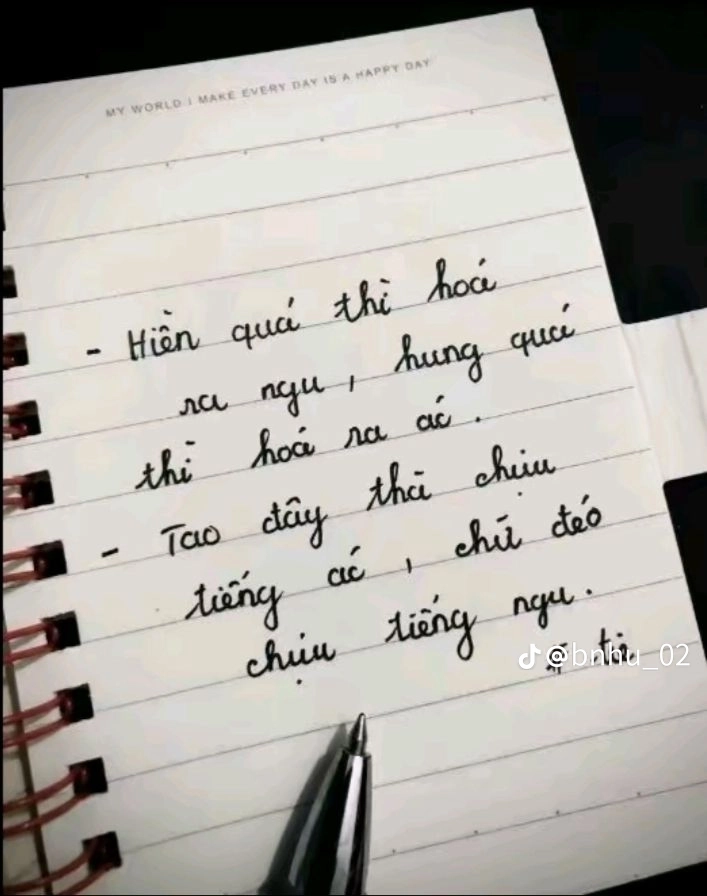 MY WORLD I MAKE EVERY DAY IS A HAPPY DAY
- Hiền quá thì hoá
ra ngu, hung quá
thì hoá ra ác.
- Tao đây thà chịu
tiếng ác, chứ đéo
chịu tiếng ngu.
@bnhu_02